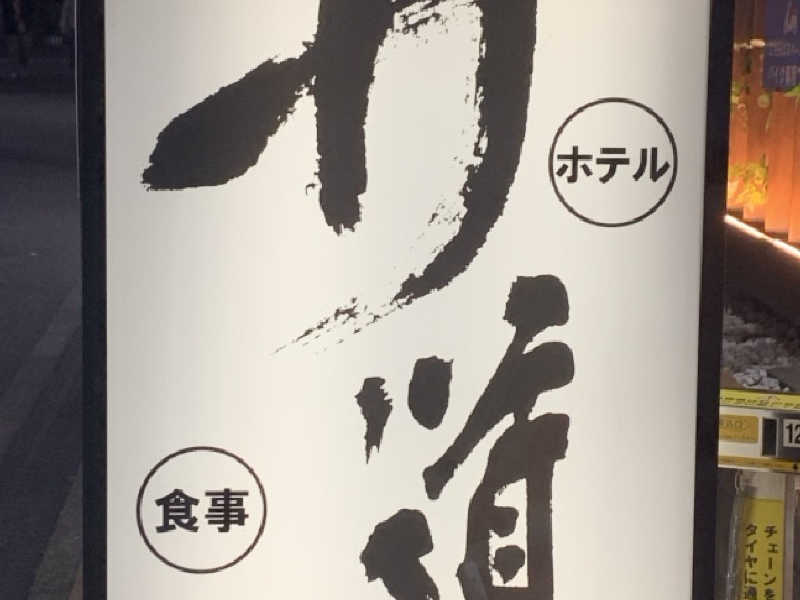 ホテル
道
食事
12
チェーンを
タイヤに通